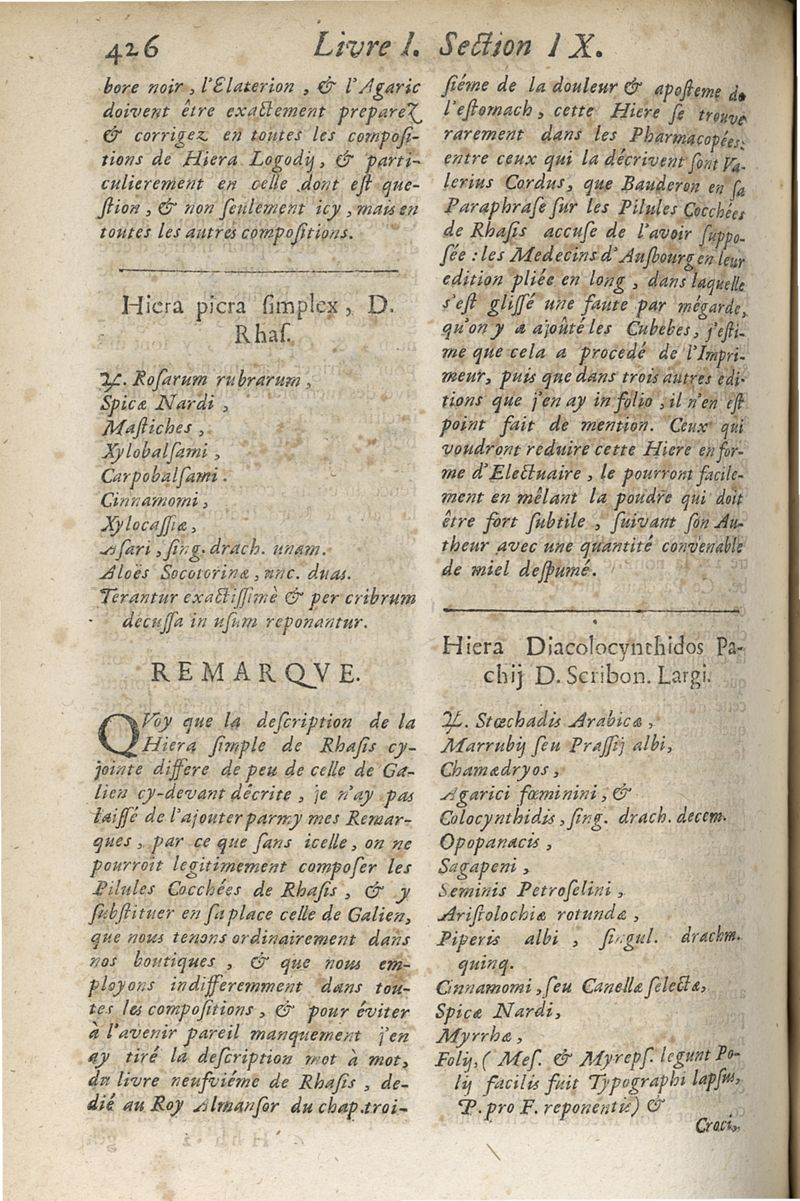 426 Livre I. Section IX.
bore noir, l'Elaterion, & l'Agaric
doivent être exactement preparez
& corrigez en toutes les composi-
tions de Hiera Logodij, & parti-
culierement en celle dont est que-
stion, & non seulement icy, mais en
toutes les autres compositions.
Hiera picra simplex, D.
Rhas.
℞. Rosarum rubrarum,
Spicæ Nardi,
Mastiches,
Xylobalsami,
Carpobalsami.
Cinnamomi,
Xylocassiæ,
Asari, sing. drach. unam.
Aloës Socotorinæ, unc. duas.
Terantur exactissimè & per cribrum
decussa in usum reponantur.
REMARQVE.
QVoy que la description de la
Hiera simple de Rhasis cy-
jointe differe de peu de celle de Ga-
lien cy-devant décrite, je n'ay pas
laissé de l'ajouter parmy mes Remar-
ques, par ce que sans icelle, on ne
pourroit legitimement composer les
Pilules Cocchées de Rhasis, & y
substituer en sa place celle de Galien,
que nous tenons ordinairement dans
nos boutiques, & que nous em-
ployons indifferemment dans tou-
tes les compositions, & pour éviter
à l'avenir pareil manquement j'en
ay tiré la description mot à mot,
du livre neufviéme de Rhasis, de-
dié au Roy Almansor du chap. troi-
siéme de la douleur & aposteme de
l'estomach, cette Hiere se trouve
rarement dans les Pharmacopées,
entre ceux qui la décrivent sont Va-
lerius Cordus, que Bauderon en sa
Paraphrase sur les Pilules Cocchées
de Rhasis accuse de l'avoir suppo-
sée : les Medecins d'Ausbourg en leur
edition pliée en long, dans laquelle
s'est glissé une faute par mégarde,
qu'on y a ajoûté les Cubebes, j'esti-
me que cela a procedé de l'Impri-
meur, puis que dans trois autres edi-
tions que j'en ay in folio, il n'en est
point fait de mention. Ceux qui
voudront reduire cette Hiere en for-
me d'Electuaire, le pourront facile-
ment en mêlant la poudre qui doit
être fort subtile, suivant son Au-
theur avec une quantité convenable
de miel despumé.
Hiera Diacolocynthidos Pa-
chij D. Scribon. Largi.
℞. Stœchadis Arabicæ,
Marrubij seu Prassij albi,
Chamædryos,
Agarici fœminini, &
Colocynthidis, sing. drach. decem.
Opopanacis,
Sagapeni,
Seminis Petroselini,
Aristolochiæ rotundæ,
Piperis albi, singul. drachm.
quinq.
Cinnamomi, seu Canellæ selectæ,
Spicæ Nardi,
Myrrhæ,
Folij, (Mes. & Myreps. legunt Po-
lij facilis fuit Typographi lapsus,
P. pro F. reponentis) &
Croci,